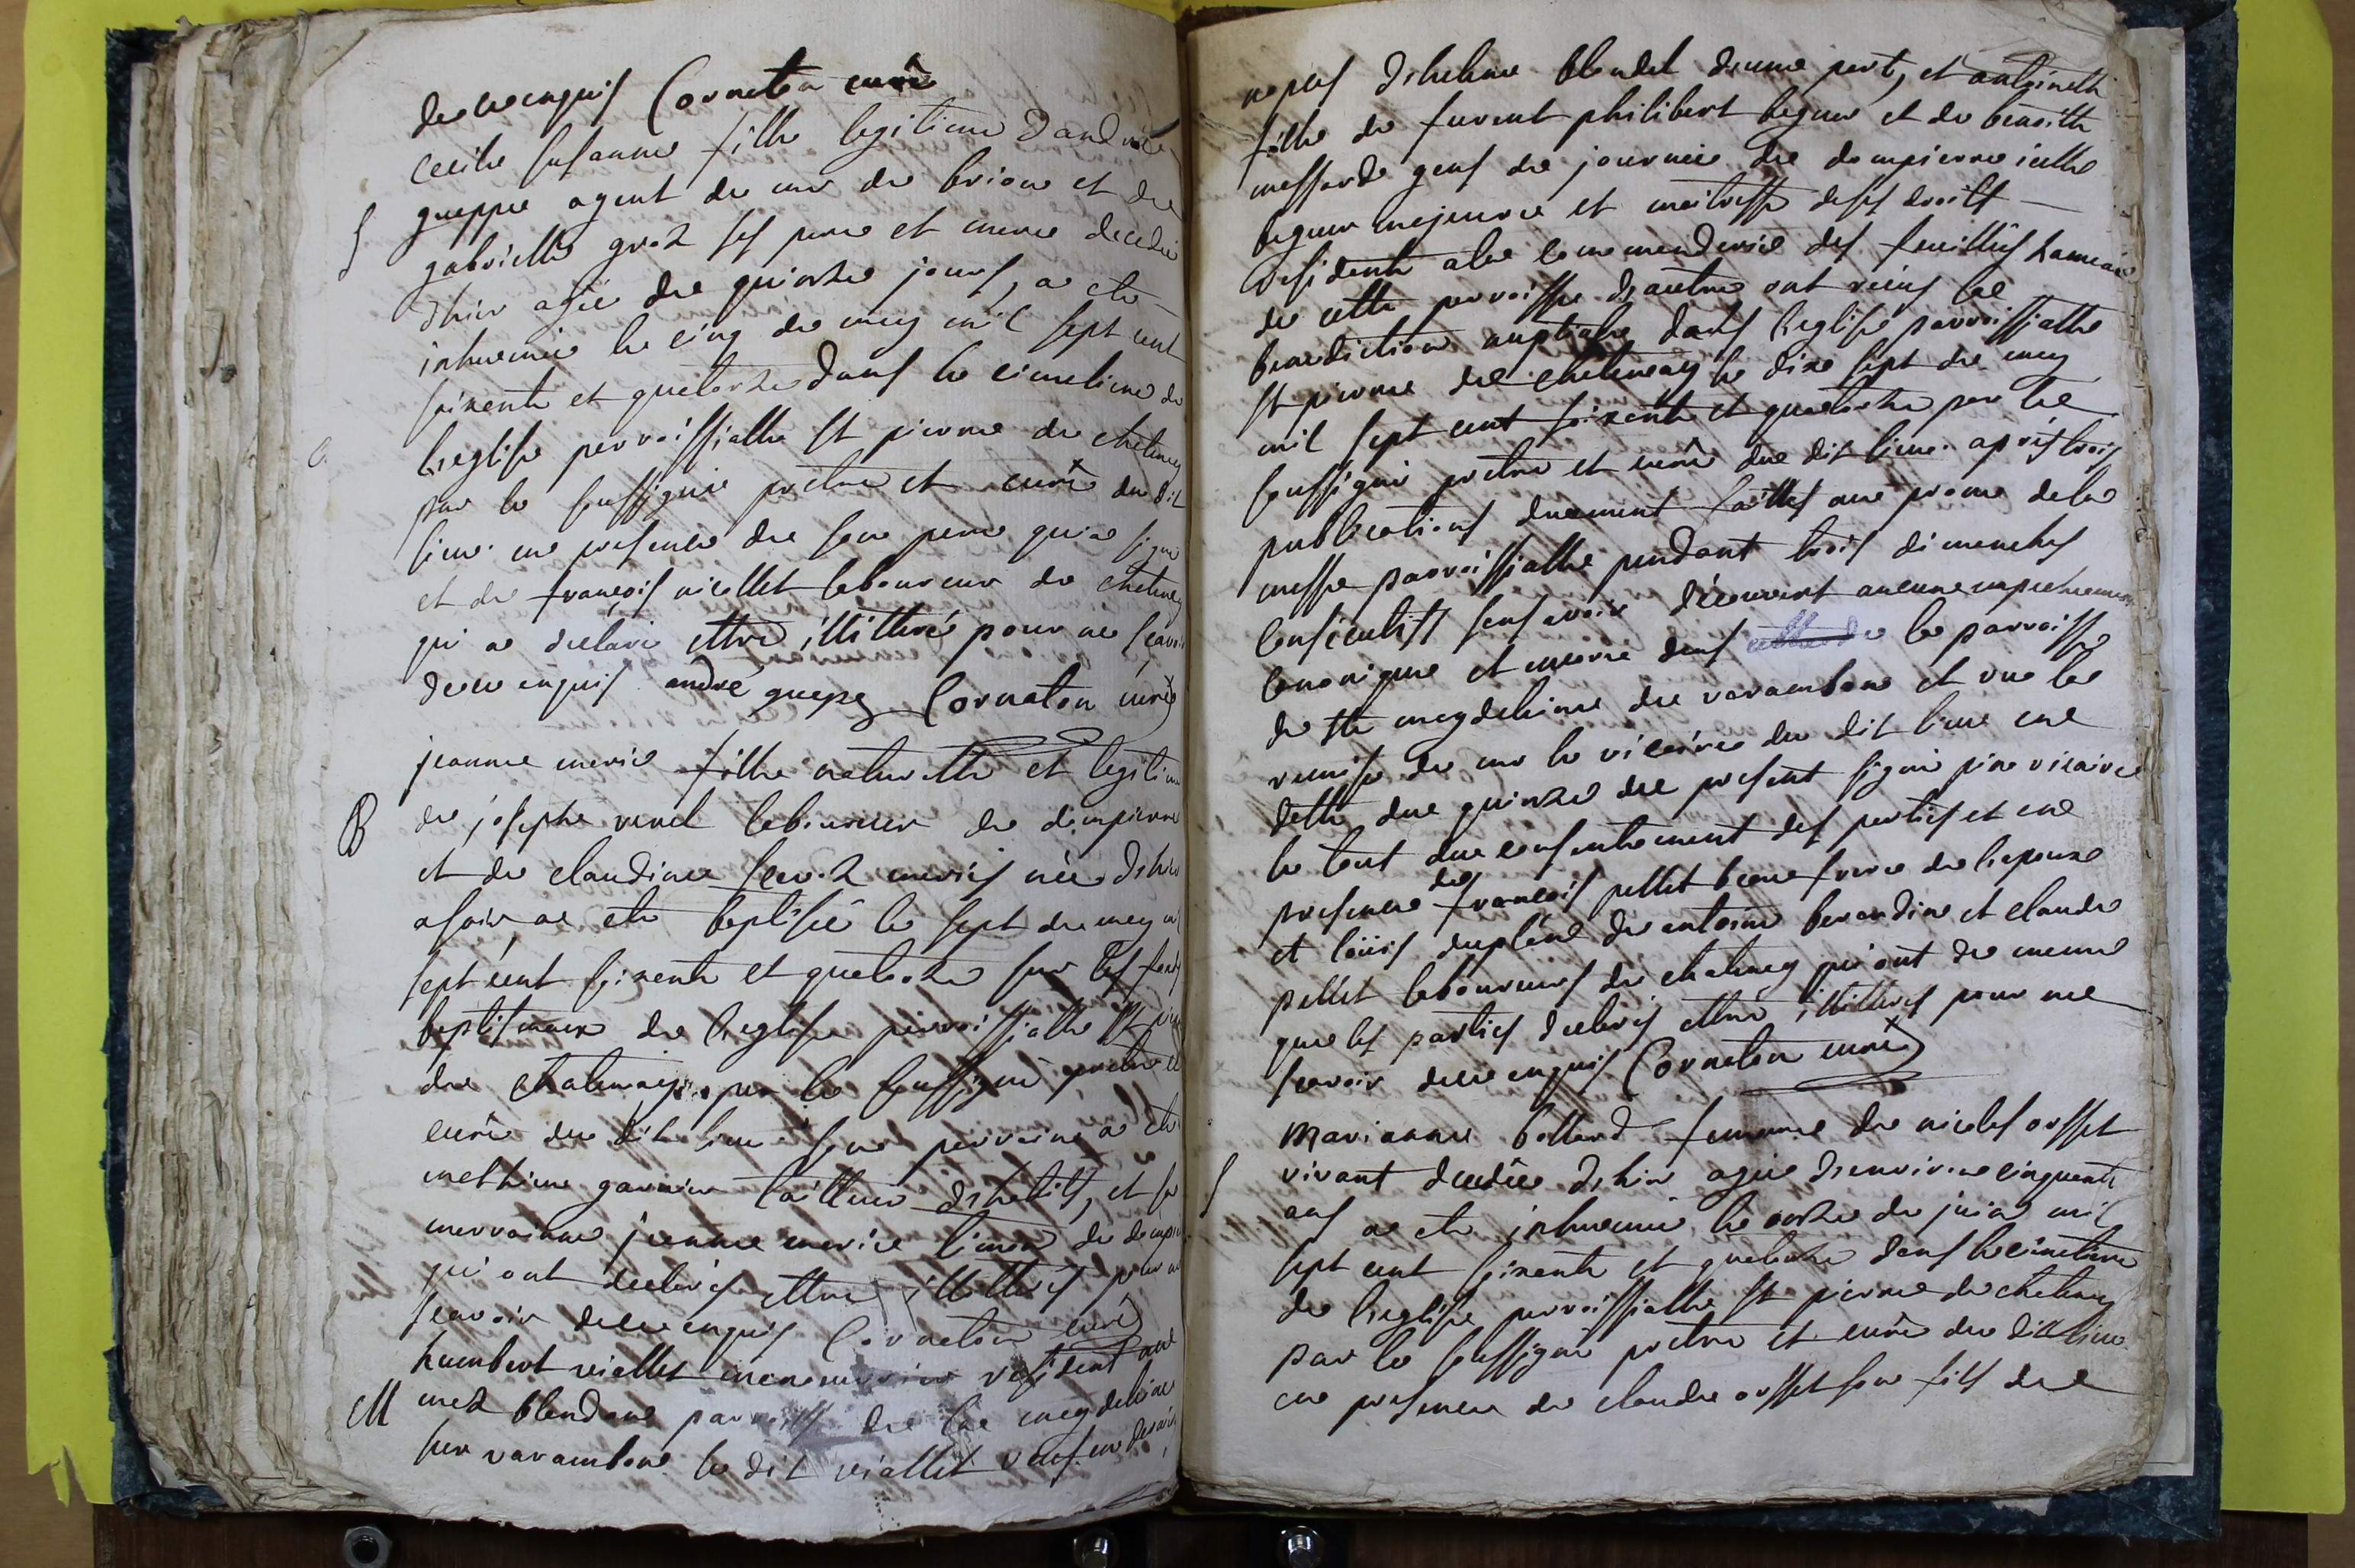 de ce enquis Cornaton curé
Cecile susanne fille legitime d'andré
gueppe agent de mr de brione et de
S gabrielle groz ses pere et mere decedée
d'hier agée de quinze jours, a ete
inhumée le cinq de may mil sept cent
soixente et quatorze dans le cimetiere de
l'eglise parroissialle st pierre de chatenay
par le soussigné pretre et curé du dit
lieu en presence de son pere qui a signé
et de françois viollet laboureur de chatenay
qui a declaré ettre illitteré pour ne scavoir
de ce enquis andré guepe Cornaton curé
jeanne marie fille naturelle et legitime
B de josephe laboureur de dompierre
et de claudine mariés née d'hier
a soir a ete baptisée le sept de may mil
sept cent soixente et quatorze sur les fonds
baptismaux de l'eglise parroissialle st pierre
de chatenay par le soussigné pretre et
curé du dit lieu son parraine a ete
mathieu garnier tailleur d'habits, et sa
marraine jeanne marie de dompierre
qui ont declarés ettre illitterés pour ne
scavoir de ce enquis Cornaton curé
humbert viollet résident au
M mez blondane parroisse de la magdelaine
sur varambone le dit viollet veuf en
noces d'helene blondel d'une part, et antoinette
fille de furent philibert beguer et de benoitte
messarde gens de journée de dompierre icelle
beguer majeure et maitresse de ses droits
residente a la commanderie des feuillés hameau
de cette parroisse d'autre ont recus la
benediction nuptiale dans l'eglise parroissialle
st pierre de chatenay le dix sept de may
mil sept cent soixente et quatorze par le
soussigné pretre et curé du dit lieu après trois
publications duement faittes au prone de la
messe parroissialle pendant trois dimanches
consecutifs sans avoir découvert aucune empechement
canonique et encore dans la parroisse
de ste magdelaine de varambone et vue la
remise de mr le vicaire du dit lieu en
datte du quinze de present signé vicaire
le tout du consentement des parties et en
presence de françois pellet beau frere de l'epouse
et loüis duplâne de antoine berardine et claude
pellet laboureurs de chatenay qui ont de meme
que les parties declarés ettre illitterés pour ne
scavoir de ce enquis Cornaton curé
Marianne bollard femme de nicolas orsset
S vivant decedée d'hier agée d'environ cinquante
ans a ete inhumée le onze de juin mil
sept cent soixente et quatorze dans le cimetiere
de l'eglise parroissialle st pierre de chatenay
par le soussigné pretre et curé du dit lieu
en presence de claude orsset son fils de